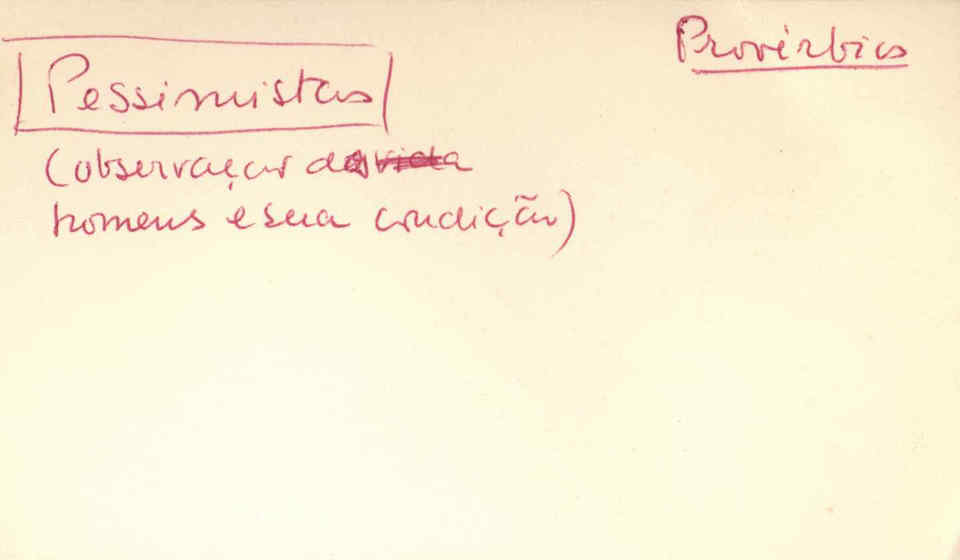 Provérbios
Pessimistas
(observaçar dos vida
homens e sua condição)